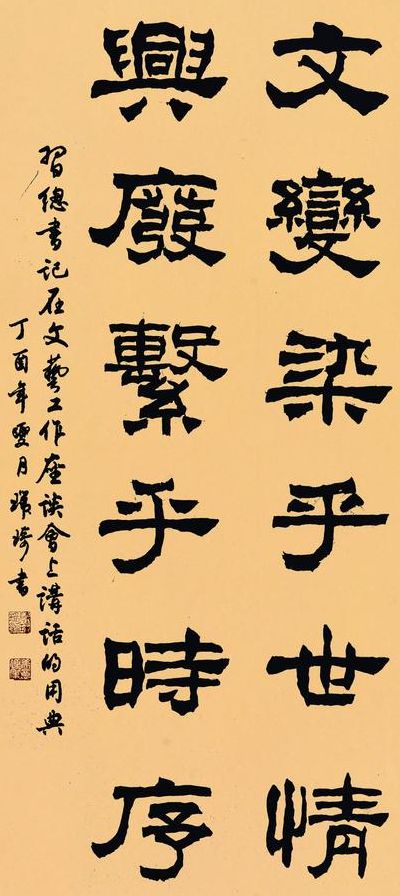 文變染乎世情
興廢繫乎時序
習總書記在文藝工作座談會上講話的用典
丁酉年 月 書